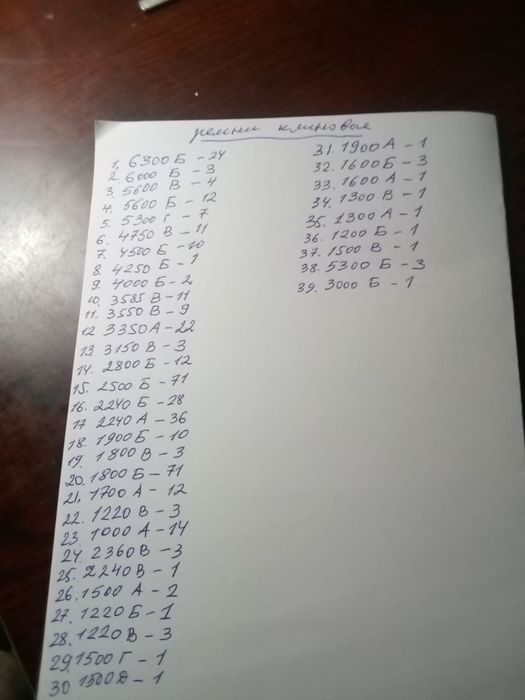 ремни клиновые
1. 6300 Б - 24
2. 6000 Б - 3
3. 5600 В - 4
4. 5600 Б - 12
5. 5300 Г - 7
6. 4750 В - 11
7. 4500 Б - 10
8. 4250 Б - 1
9. 4000 Б - 2
10. 3585 В - 11
11. 3550 В - 9
12 3350 А - 22
13 3150 В - 3
14. 2800 Б - 12
15. 2500 Б - 71
16. 2240 Б - 28
17. 2240 А - 36
18. 1900 Б - 10
19. 1800 В - 3
20. 1800 Б - 71
21. 1700 А - 12
22. 1220 В - 3
23. 1000 А - 14
24. 2360 В - 3
25. 2240 В - 1
26. 1500 А - 2
27. 1220 Б - 1
28. 1220 В - 3
29. 1500 Г - 1
30 1500 Д - 1
31. 1900 А - 1
32. 1600 Б - 3
33. 1600 А - 1
34. 1300 В - 1
35. 1300 А - 1
36. 1200 Б - 1
37. 1500 В - 1
38. 5300 Б - 3
39. 3000 Б - 1